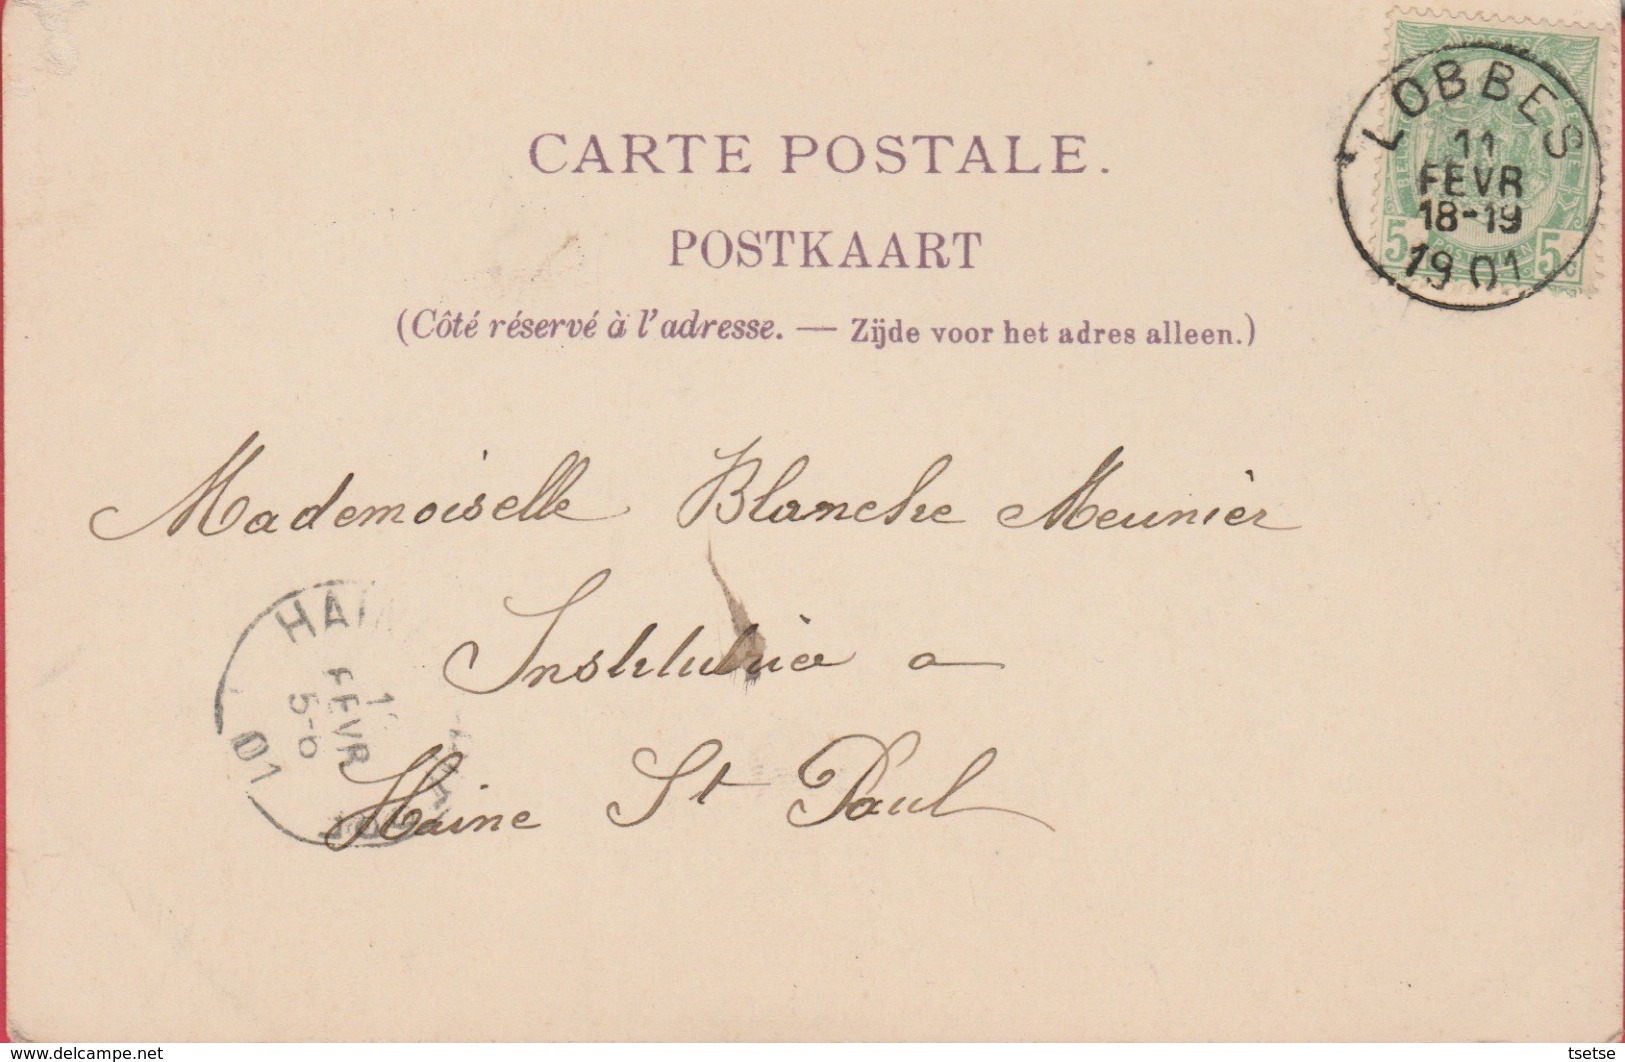 LOBBES
11
FEVR
18-19
1901
POSTES
5 5c
CARTE POSTALE.
POSTKAART
(Côté réservé à l'adresse. — Zijde voor het adres alleen.)
Mademoiselle Blanche Meunier
Institutrice a
Haine St Paul
HAI
FEVR
5-6
01
delcampe.net
tsetse